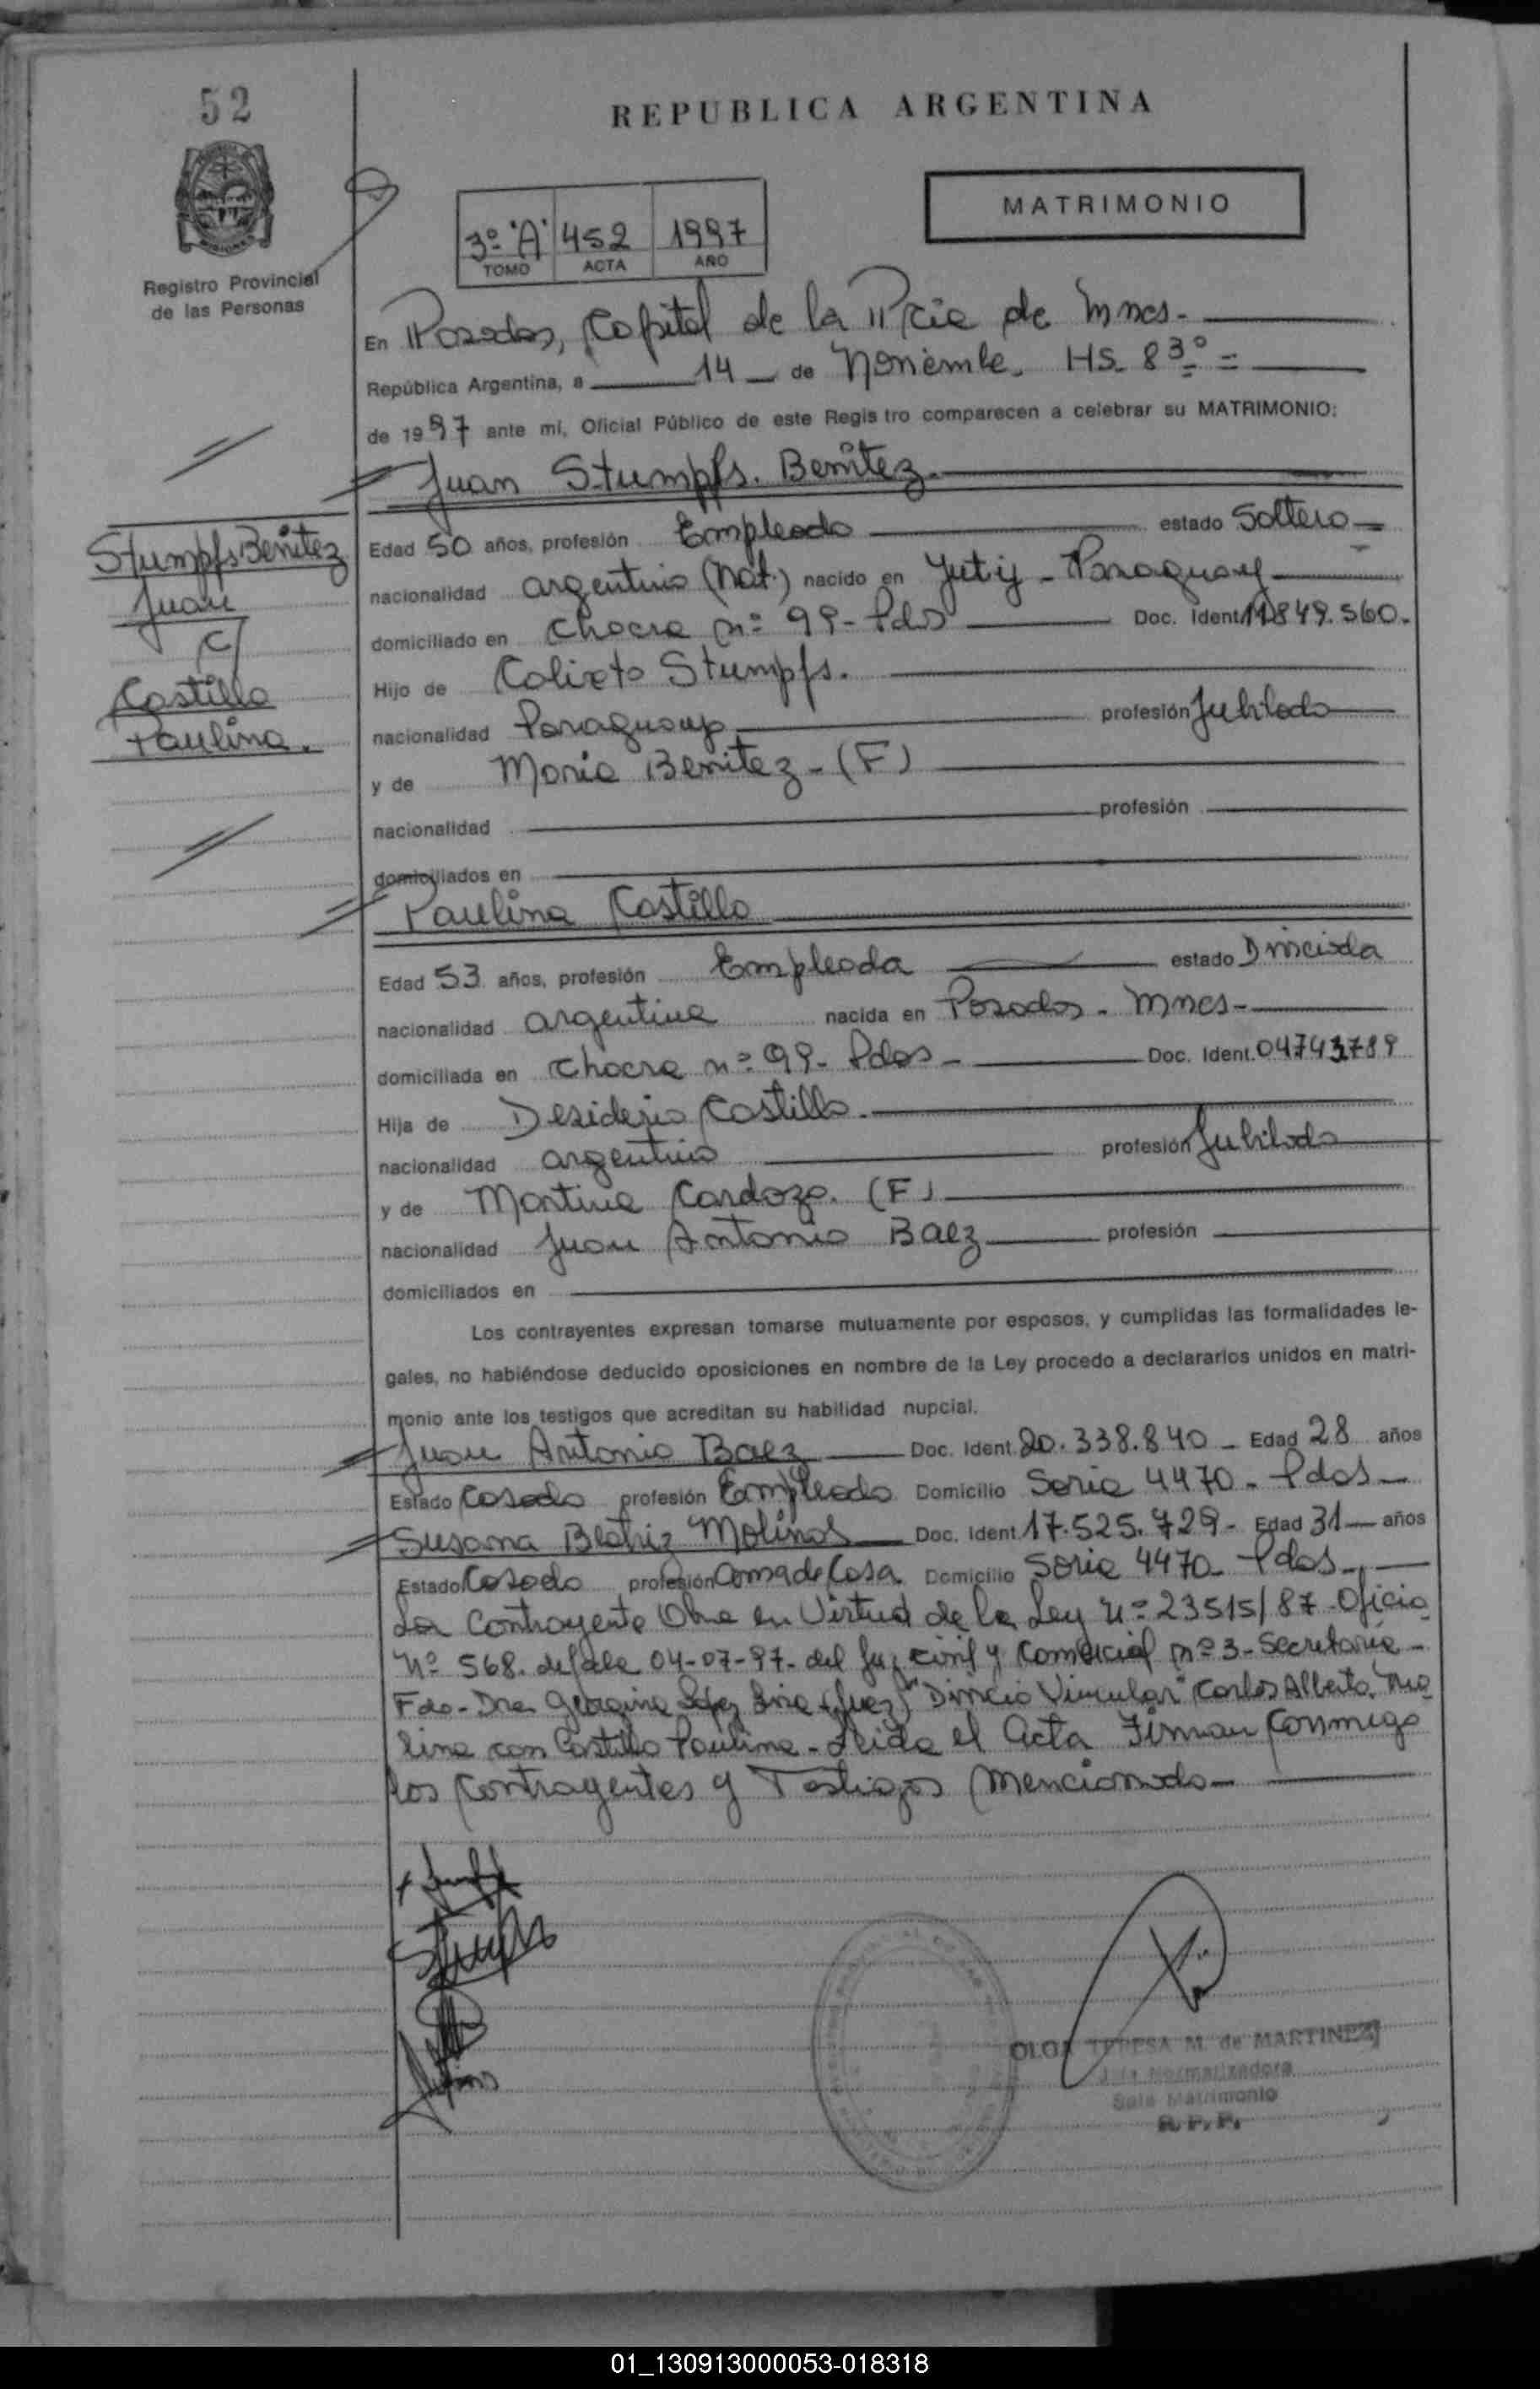 52
REPUBLICA ARGENTINA
MATRIMONIO
3º "A" 452 1997
TOMO ACTA AÑO
Registro Provincial
de las Personas
En Posadas, Capital de la Pcia de Mnes.
República Argentina, a 14 de Noviembre. HS. 8 3º =
de 1997 ante mí, Oficial Público de este Registro comparecen a celebrar su MATRIMONIO:
Juan Stumpfs. Benítez.
Stumpfs Benítez
Juan
C/
Castillo
Paulina.
Edad 50 años, profesión Empleado estado Soltero
nacionalidad argentino (Nat.) nacido en Yuty - Paraguay
domiciliado en Chacra nº 99 - Pdas Doc. Ident. 11849.560.
Hijo de Calixto Stumpfs.
nacionalidad Paraguayo profesión Jubilado
y de María Benítez - (F)
nacionalidad profesión
domiciliados en
Paulina Castillo
Edad 53 años, profesión Empleada estado Divorciada
nacionalidad argentina nacida en Posadas - Mnes -
domiciliada en Chacra nº 99 - Pdas - Doc. Ident. 04743789
Hija de Desiderio Castillo.
nacionalidad argentino profesión Jubilado
y de Martina Cardozo. (F)
nacionalidad Juan Antonio Baez profesión
domiciliados en
Los contrayentes expresan tomarse mutuamente por esposos, y cumplidas las formalidades le-
gales, no habiéndose deducido oposiciones en nombre de la Ley procedo a declararlos unidos en matri-
monio ante los testigos que acreditan su habilidad nupcial.
Juan Antonio Baez Doc. Ident. 20.338.840 - Edad 28 años
Estado Casado profesión Empleado Domicilio Soria 4470 - Pdas -
Susana Beatriz Molinas Doc. Ident. 17.525.729 - Edad 31 años
Estado Casado profesión Ama de Casa Domicilio Soria 4470 - Pdas -
La Contrayente Obra en Virtud de la Ley Nº 23515/87 - Oficio
Nº 568. de fecha 04-07-97 - del Juz. Civil y Comercial nº 3 - Secretaría -
Fdo - Dra. (Juez) "Divorcio Vincular" Carlos Alberto Mo
lina con Castillo Paulina - Leída el Acta Firman Conmigo
los Contrayentes y Testigos Mencionado -
OLGA TERESA M. de MARTINEZ
Jefa Normalizadora
Sala Matrimonio
R. P. P.
01_130913000053-018318